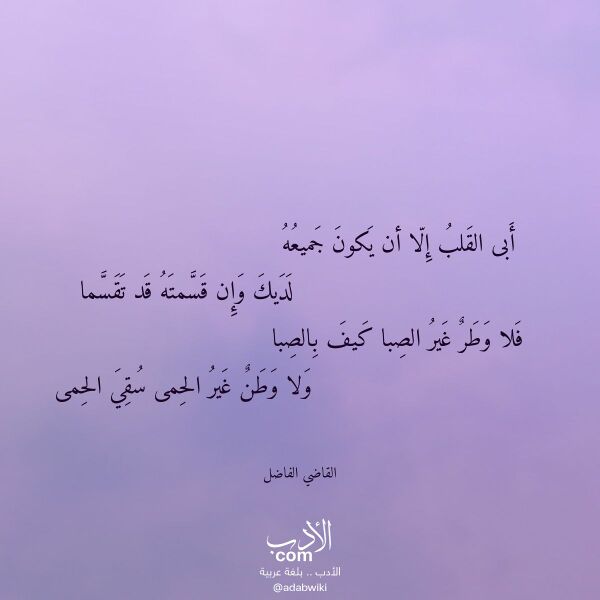 أَبى القَلبُ إِلّا أن يَكونَ جَميعُهُ
لَدَيكَ وَإِن قَسَّمتَهُ قَد تَقَسَّما
فَلا وَطَرٌ غَيرُ الصِبا كَيفَ بِالصِبا
وَلا وَطَنٌ غَيرُ الحِمى سُقِيَ الحِمى
القاضي الفاضل
الأدب
.com
الأدب .. بلغة عربية
@adabwiki